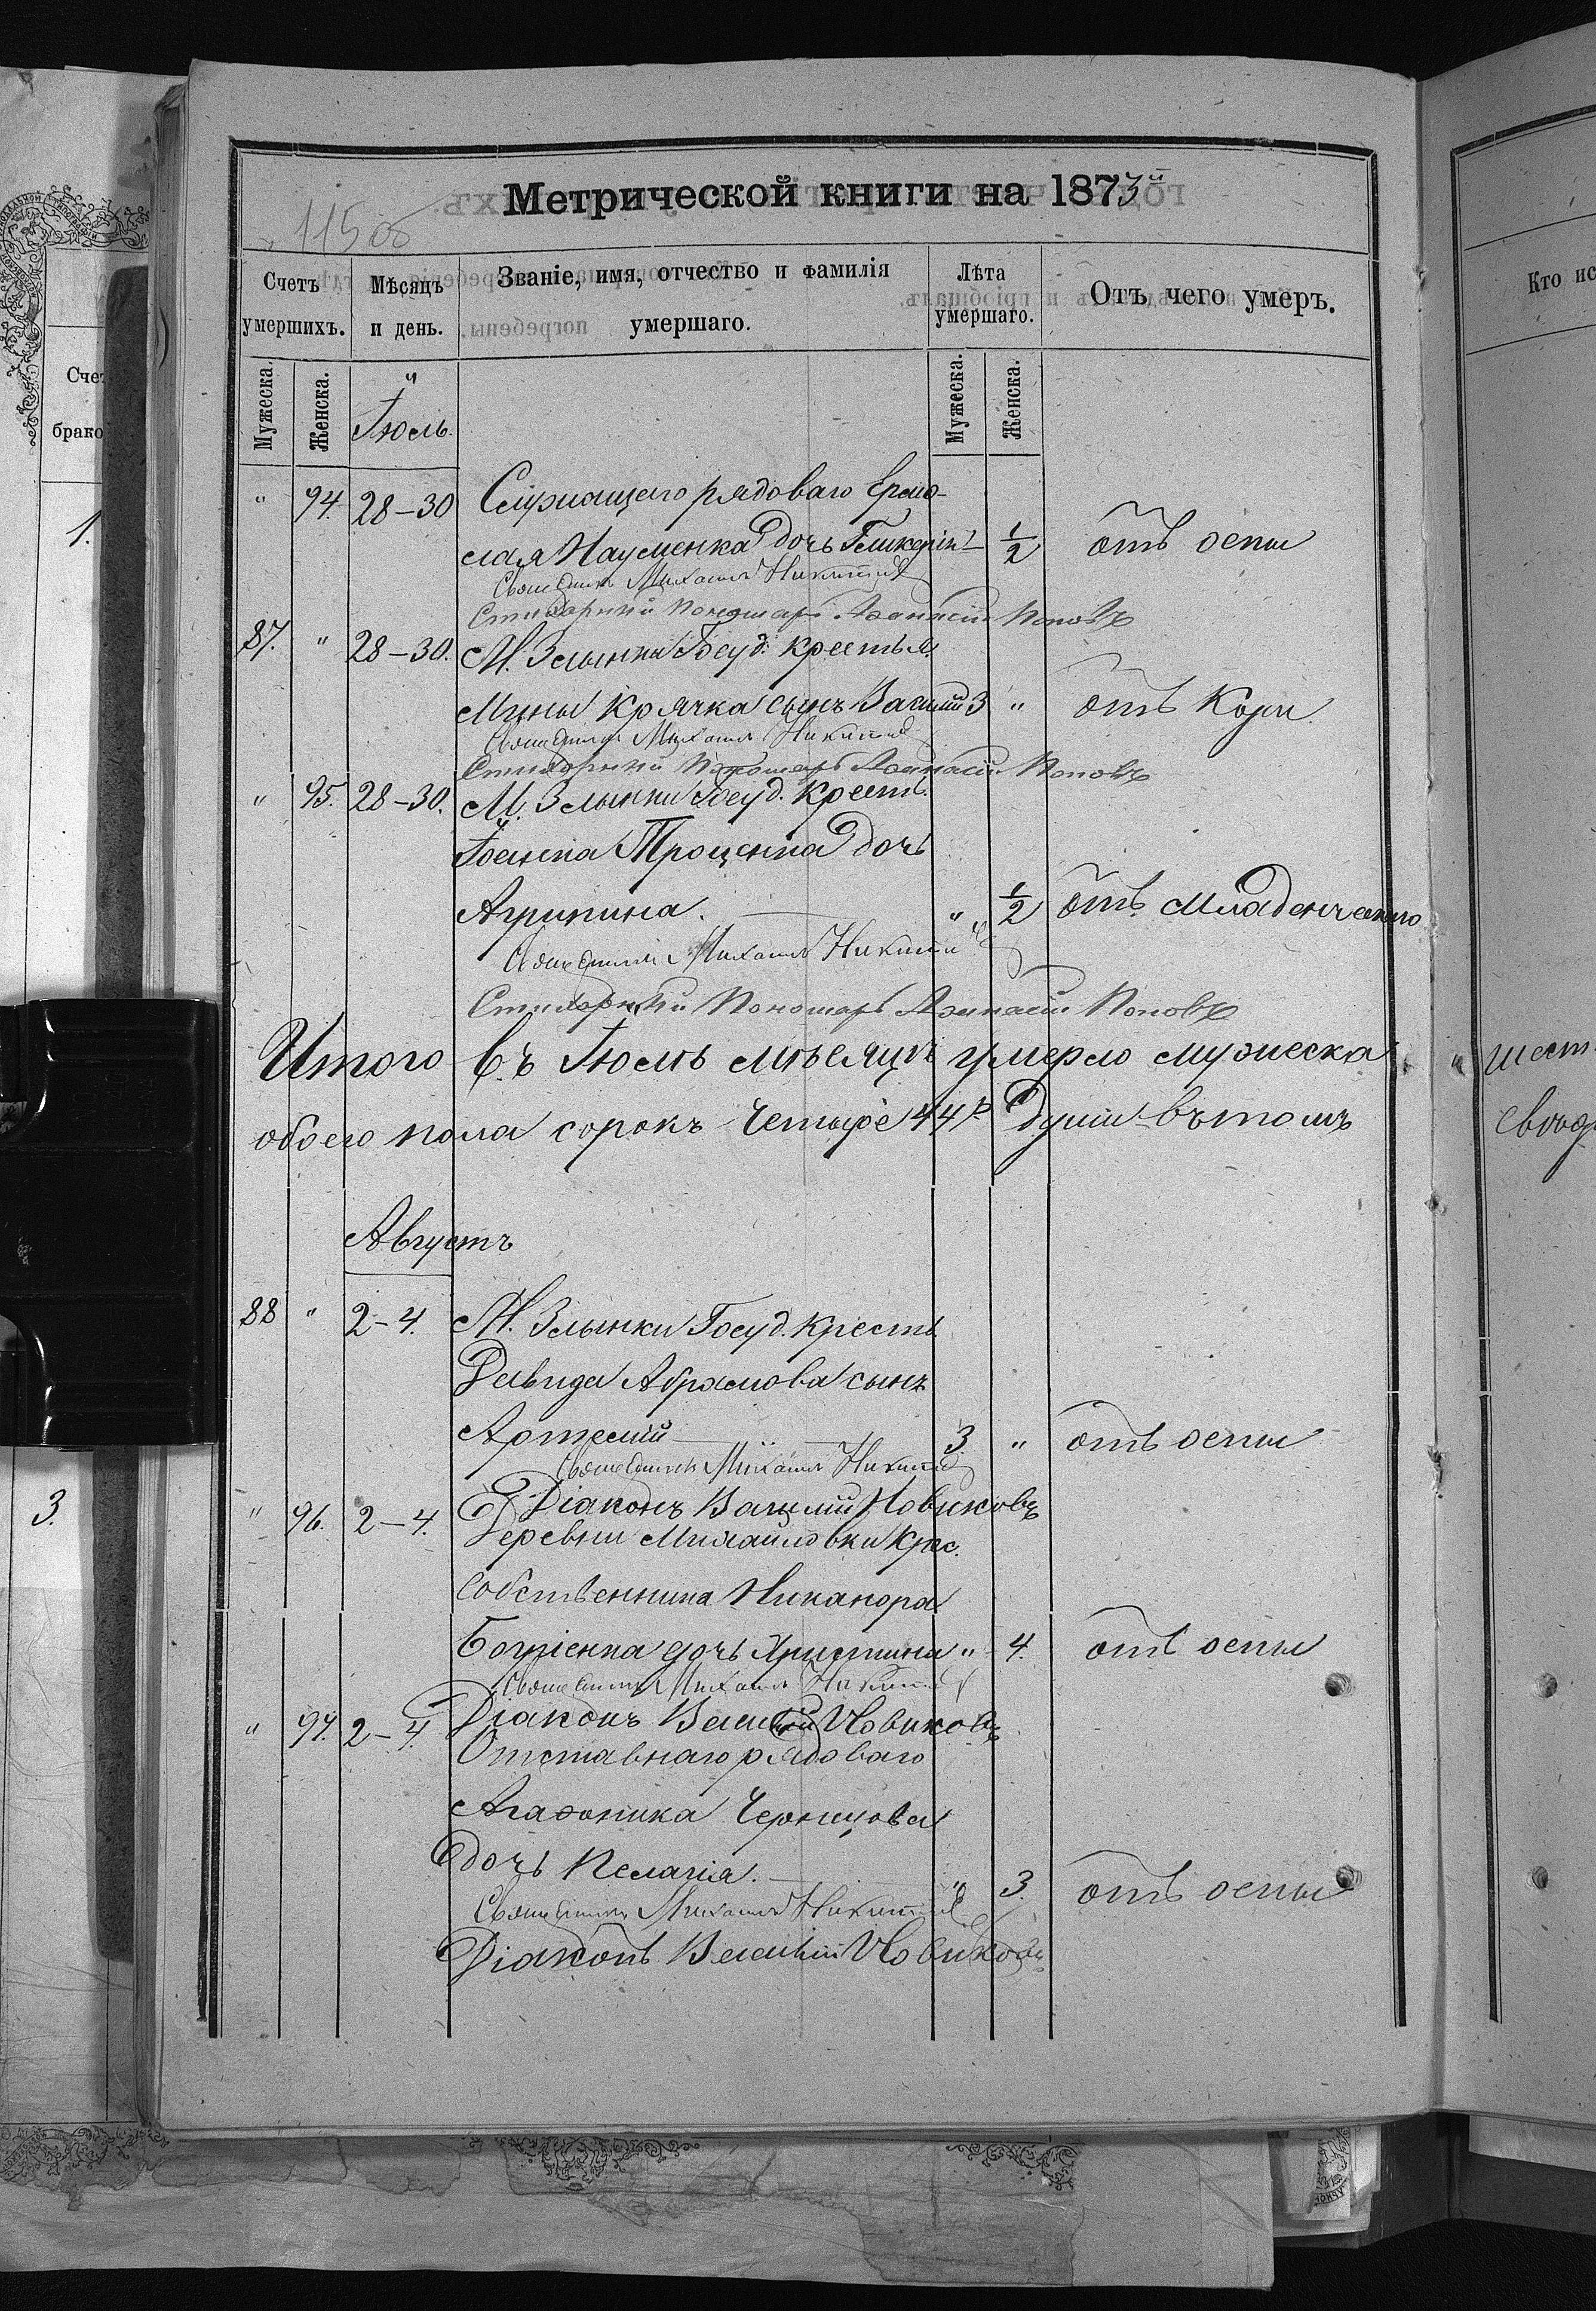 Метрической книги на 1873й
115об
Счетъ умершихъ.
Мѣсяцъ и день.
Званіе, имя, отчество и фамилія умершаго.
Лѣта умершаго.
Отъ чего умеръ.
Мужеска.
Женска.
Іюль.
Мужеска.
Женска.
" 94. 28–30 Служащаго рядоваго Ермо-
лая Науменка дочь Гликерія – 1/2 отъ оспы
Священникъ Михаилъ Никитинъ
Стихарный Пономарь Аѳанасій Поповъ
87. " 28–30. М. Злынки Госуд. крестья.
Мины Крячка сынъ Василій 3 " отъ Кори.
Священникъ Михаилъ Никитинъ
Стихарный Пономарь Аѳанасій Поповъ
" 95. 28–30. М. Злынки Госуд. Крест.
Іоанна Троценка дочь
Агрипина. " 1/2 отъ младенческаго
Священникъ Михаилъ Никитинъ
Стихарный Пономарь Аѳанасій Поповъ
Итого въ Іюлѣ мѣсяцѣ умерло мужеска
обоего пола сорокъ четыре 44 души въ томъ
Августъ
88 " 2–4. М. Злынки Госуд. Крестъ.
Давида Абрамова сынъ
Артемій 3. " отъ оспы
Священникъ Михаилъ Никитинъ
Діаконъ Василій Новиковъ
" 96. 2–4. Деревни Михайловки Крес.
собственника Никанора
дочь Христина " 4. отъ оспы
Священникъ Михаилъ Никитинъ
Діаконъ Василій Новиковъ
" 97. 2–4. Отставнаго рядоваго
Агаѳоника Чернцова
дочь Пелагія. " 3. отъ оспы
Священникъ Михаилъ Никитинъ
Діаконъ Василій Новиковъ
Кто ис
шест
Счет
брако
1.
3.